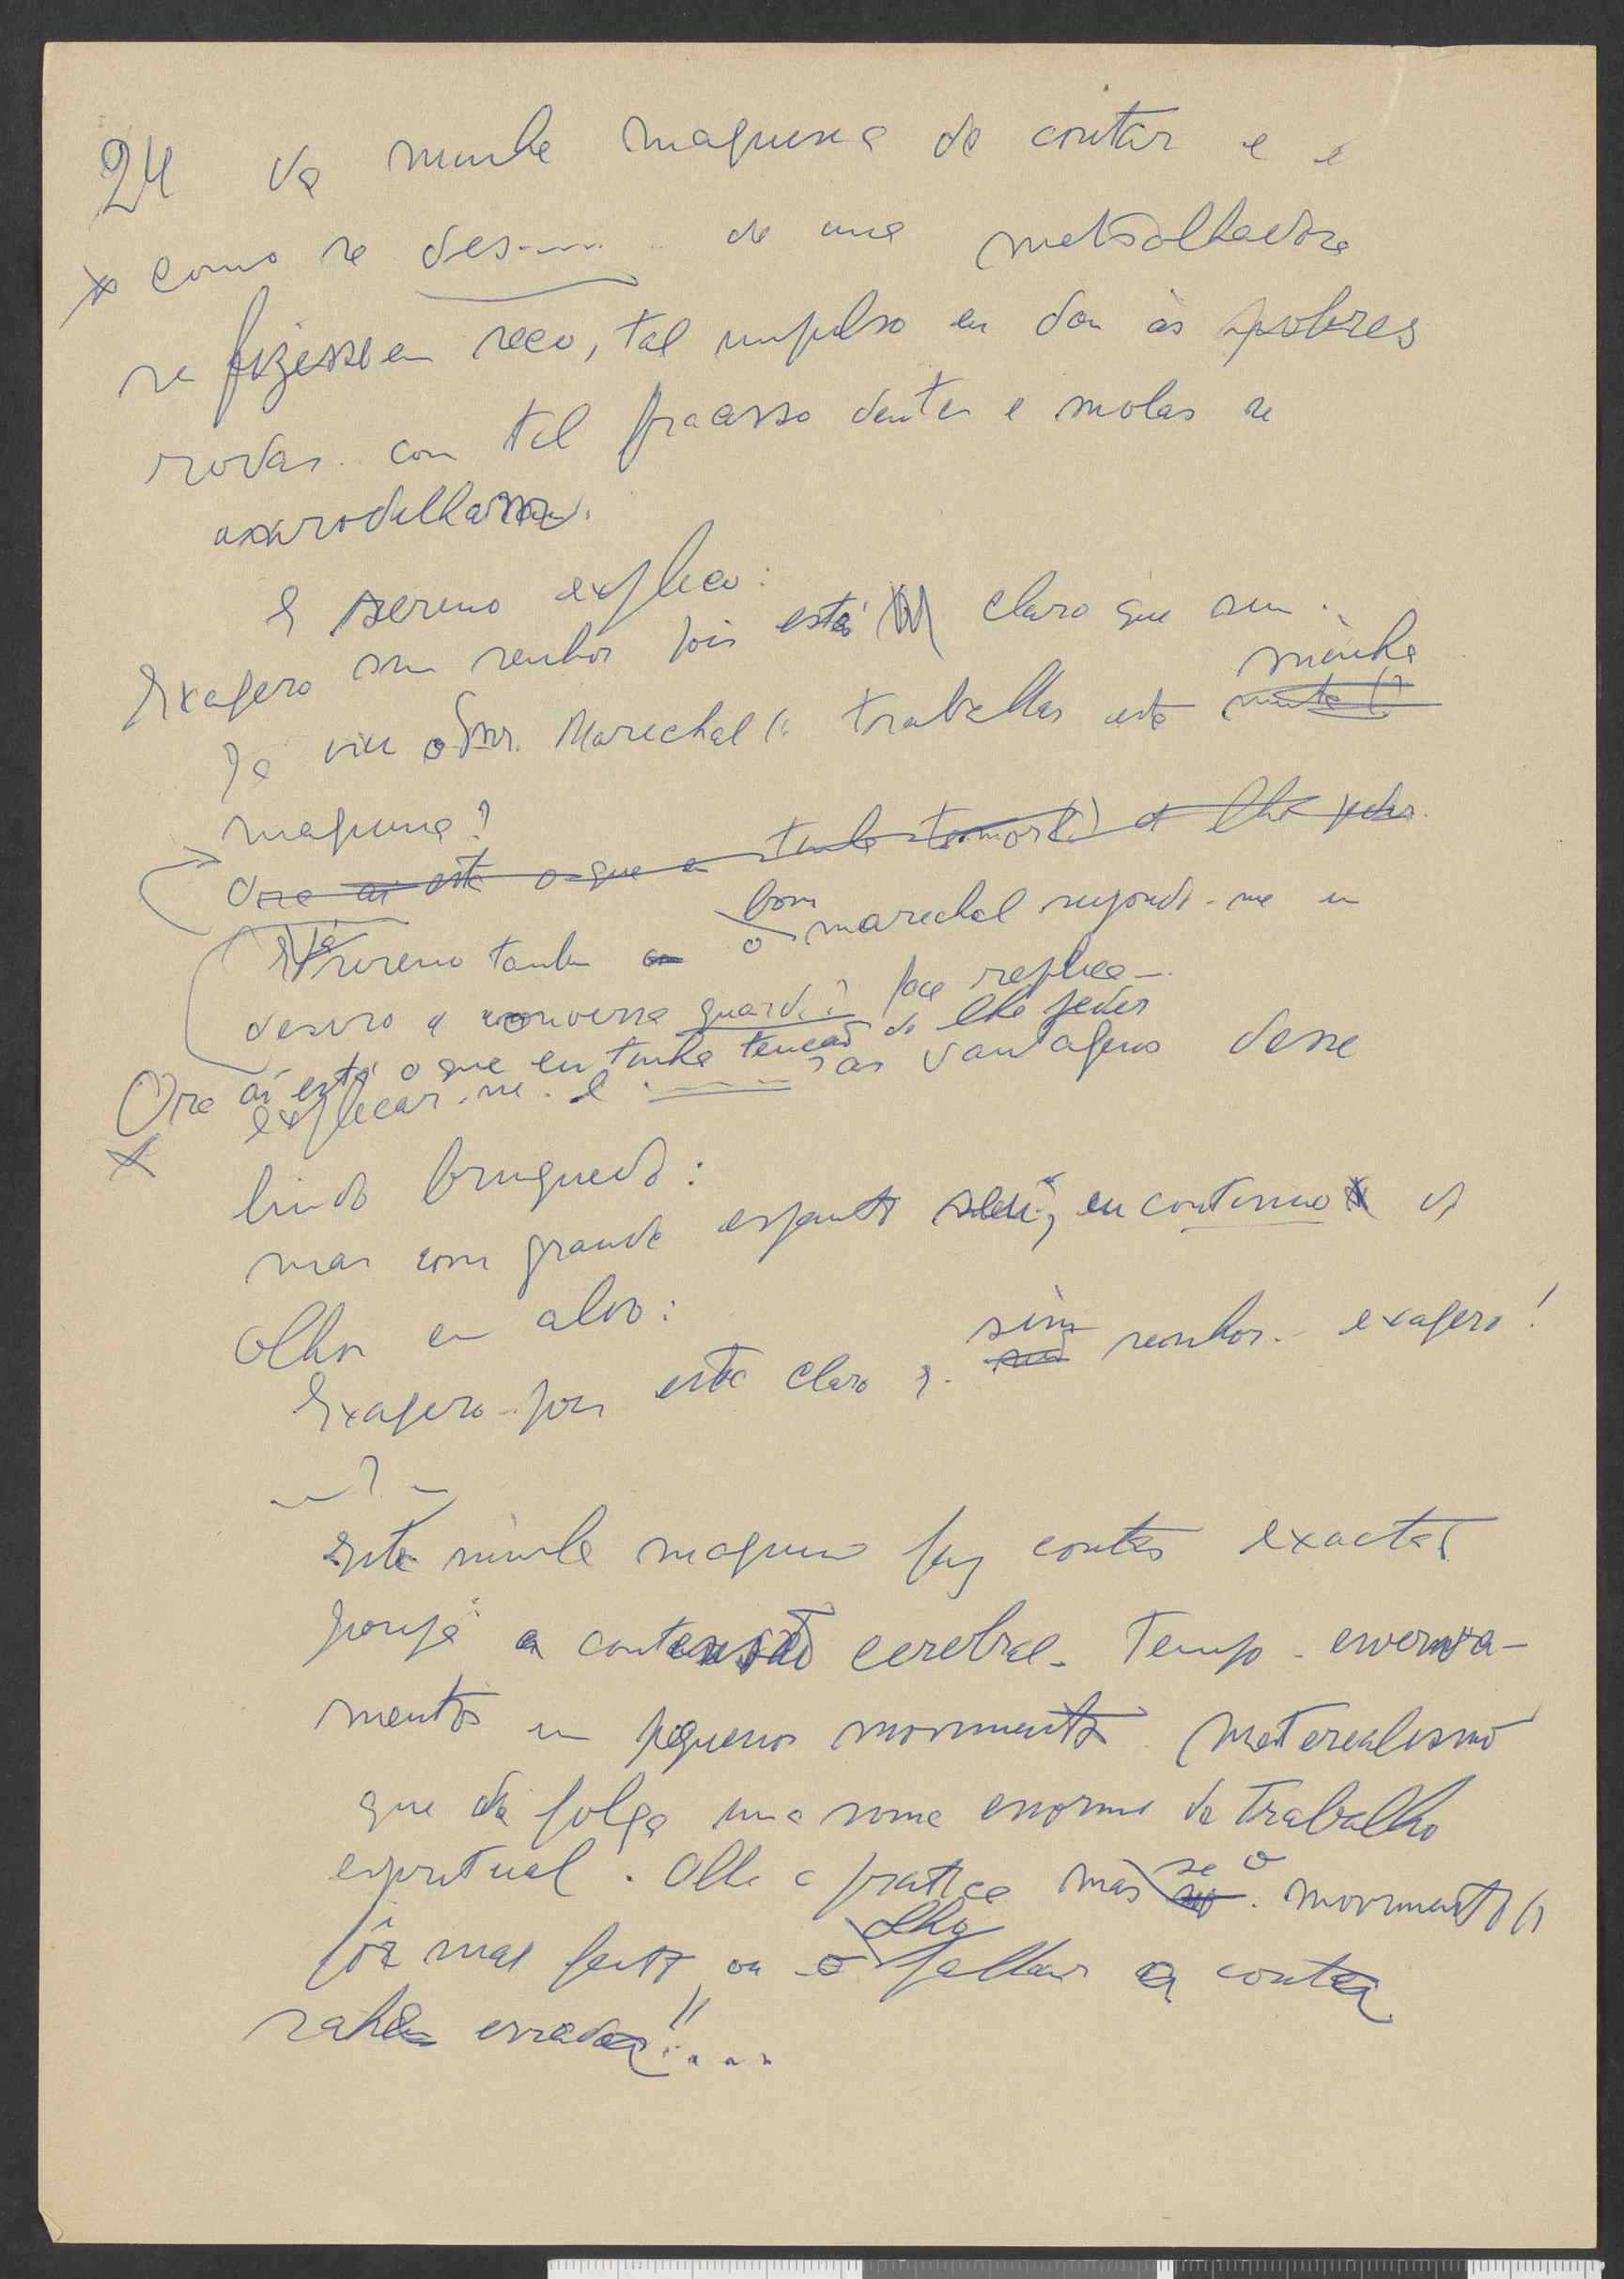 24 da minha maquina de contar e é
x como se des..... de uma metralhadora
se fizesse em seco, tal impulso eu dou ás pobres
rodas. com tal fracasso dentes e molas se
E sereno explico:
Exagero sim senhor pois está claro que sim.
Já viu o Snr. Marechal (: trabalhar esta minha
maquina?
Ora ai está o que eu tinha de lhe pedir.
sereno tambem o bom marechal responde-me em
deseno a conversa guarda? face replica-
Ora aí está o que eu tinha tenção de lhe pedir
x explicar-me. e ------ as vantagens desse
lindo brinquedo:
mas com grande espanto seu, eu continuo os
olhos em alvo:
Exagero - pois está claro q. sim senhor. exagero!
—?—
Esta minha maquina faz contas exactas
poupa a contensão cerebral. Tempo. enerva-
mentos em pequenos movimentos materealismo
que dá folga uma soma enorme de trabalho
espiritual. Olhe a pratica mas se o movimento (:
fôr mal feito, ou olha falhar a conta
sahe errada!!....